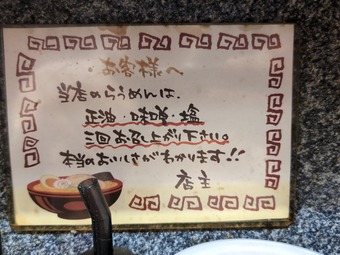 お客様へ
当店のらうめんは、
正油・味噌・塩
三回お召し上がり下さい。
本当のおいしさがわかります!!
店主